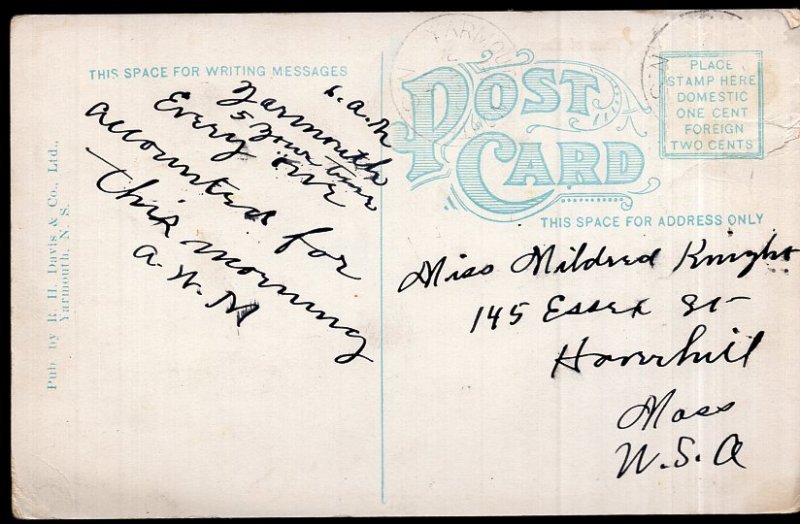 THIS SPACE FOR WRITING MESSAGES
6 a.m
Yarmouth
5 Your time
Every one
accounted for
this morning
A. W. M
Pub by R. H. Davis & Co., Ltd.,
Yarmouth, N. S.
POST
CARD
THIS SPACE FOR ADDRESS ONLY
PLACE
STAMP HERE
DOMESTIC
ONE CENT
FOREIGN
TWO CENTS
YARMOU
Miss Mildred Knight
145 Essex St
Haverhill
Mass
U.S.A